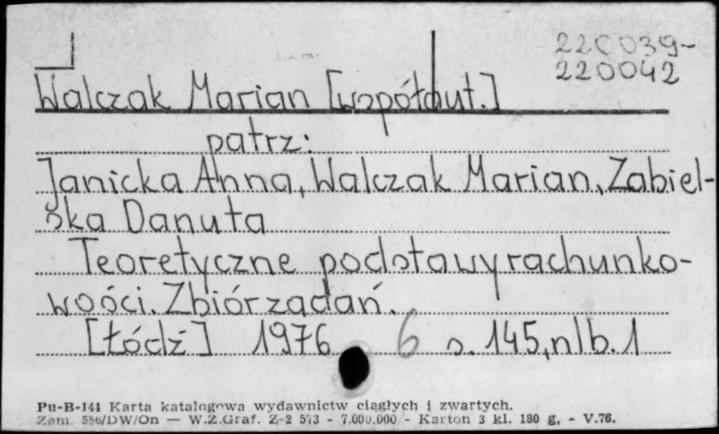 220039-
220042
Walczak Marian [współaut.]
patrz:
Janicka Anna, Walczak Marian, Zabiel-
ska Danuta
Teoretyczne podstawy rachunko-
wości. Zbiór zadań.
[Łódź] 1976 6 s. 145, nlb. 1
Pu-B-141 Karta katalogowa wydawnictw ciągłych i zwartych.
Zam. 556/DW/On — W.Z.Graf. Z-2 573 - 7.000.000 - Karton 3 kl. 180 g. - V.76.